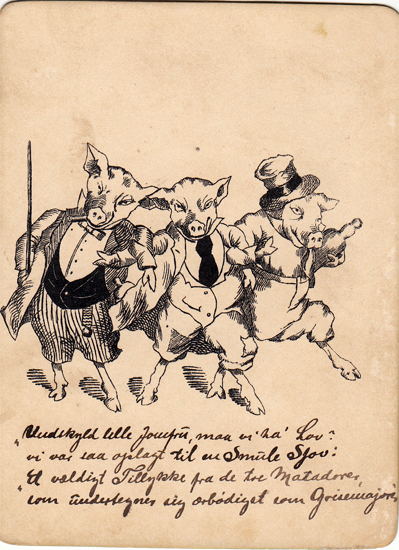 "Undskyld lille Jomfru, maa vi ha' Lov?
vi var saa oplagt til en Smule Sjov:
"Et vældigt Tillykke fra de tre Matadorer,
som undertegner sig ærbødigst som Grisemajorer